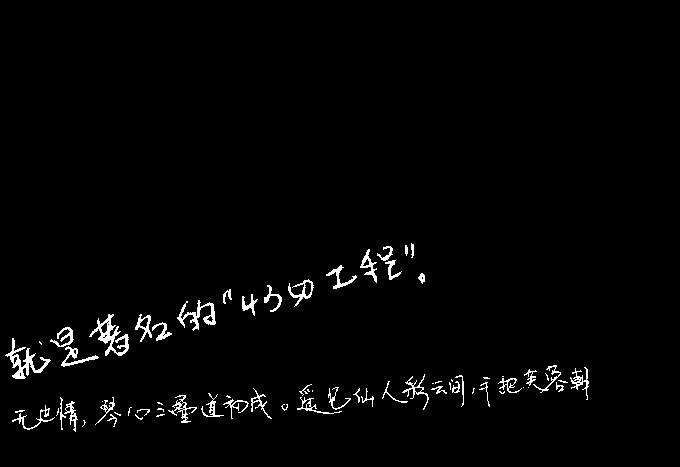 就是著名的"工程"。
无世情,琴心三叠道初成。遥见仙人彩云间,手把芙蓉朝